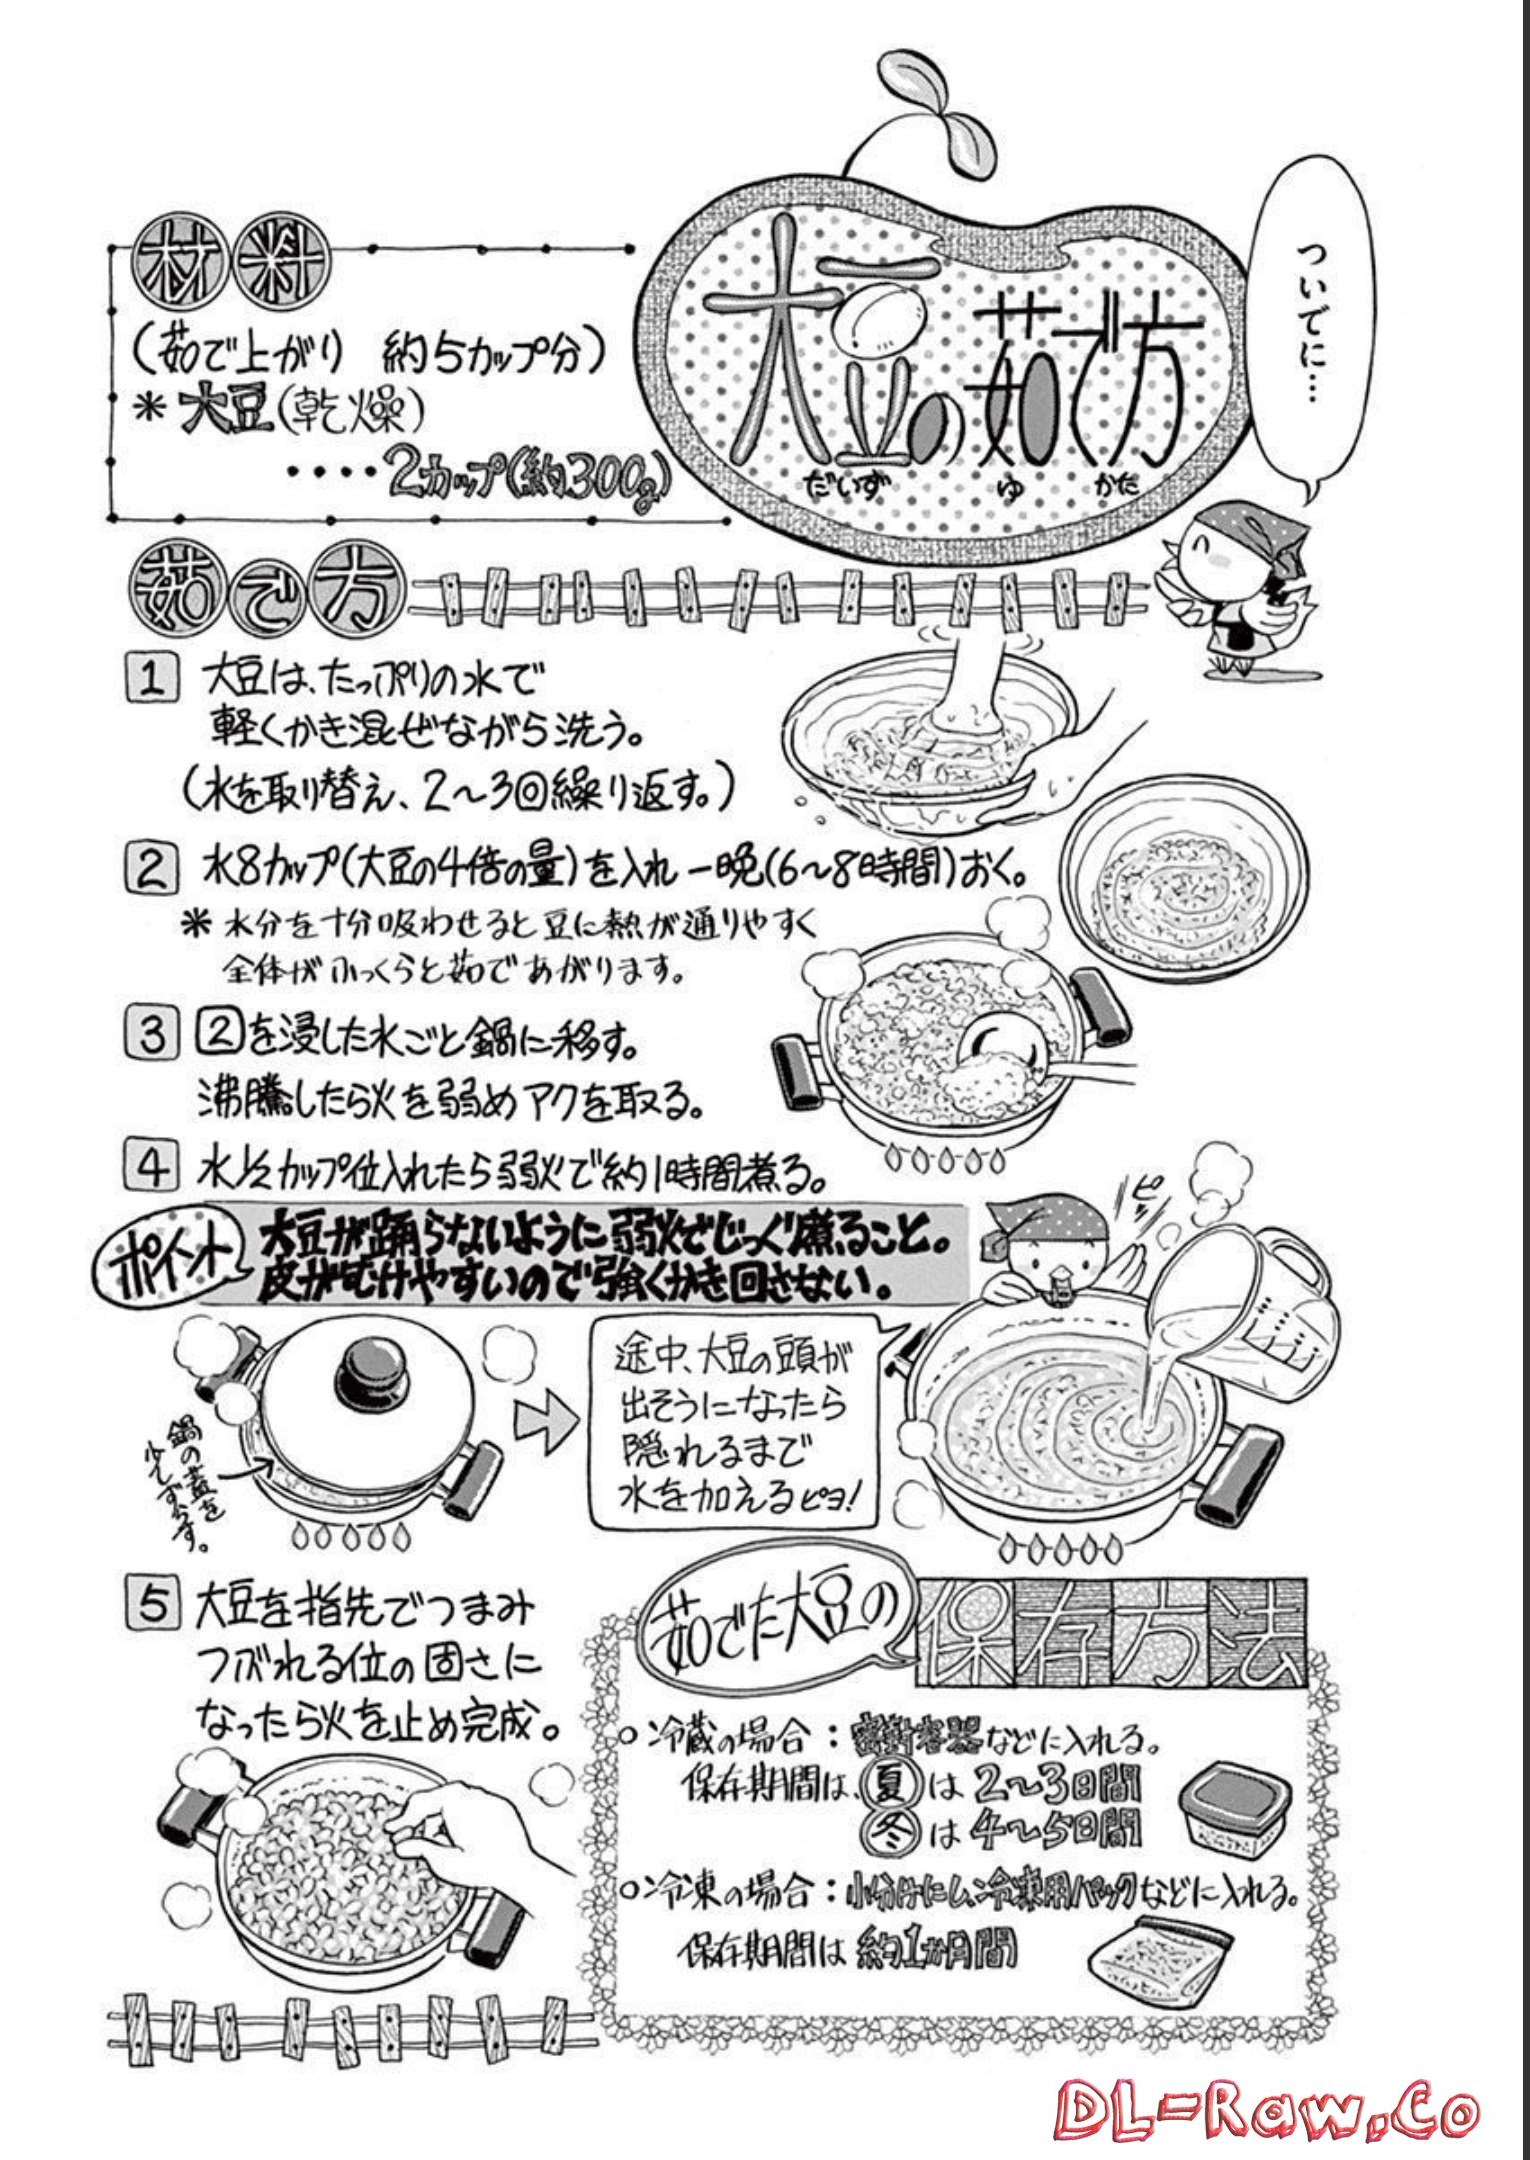 ついでに…
大豆の茹で方
だいず ゆ かた
材料
（茹で上がり 約5カップ分）
＊大豆（乾燥）
････2カップ（約300g）
茹で方
1 大豆は、たっぷりの水で
軽くかき混ぜながら洗う。
（水を取り替え、2〜3回繰り返す。）
2 水8カップ（大豆の4倍の量）を入れ一晩（6〜8時間）おく。
＊水分を十分吸わせると豆に熱が通りやすく
全体がふっくらと茹であがります。
3 2を浸した水ごと鍋に移す。
沸騰したら火を弱めアクを取る。
4 水½カップ位入れたら弱火で約1時間煮る。
ポイント
大豆が踊らないように弱火でじっくり煮ること。
皮がむけやすいので強くかき回さない。
ピッ
鍋の蓋を
少しずらす。
途中、大豆の頭が
出そうになったら
隠れるまで
水を加えるピヨ!
5 大豆を指先でつまみ
つぶれる位の固さに
なったら火を止め完成。
茹でた大豆の保存方法
○冷蔵の場合：密封容器などに入れる。
保存期間は、夏は2〜3日間
冬は4〜5日間
○冷凍の場合：小分けにし、冷凍用パックなどに入れる。
保存期間は約1か月間
DL-Raw.Co